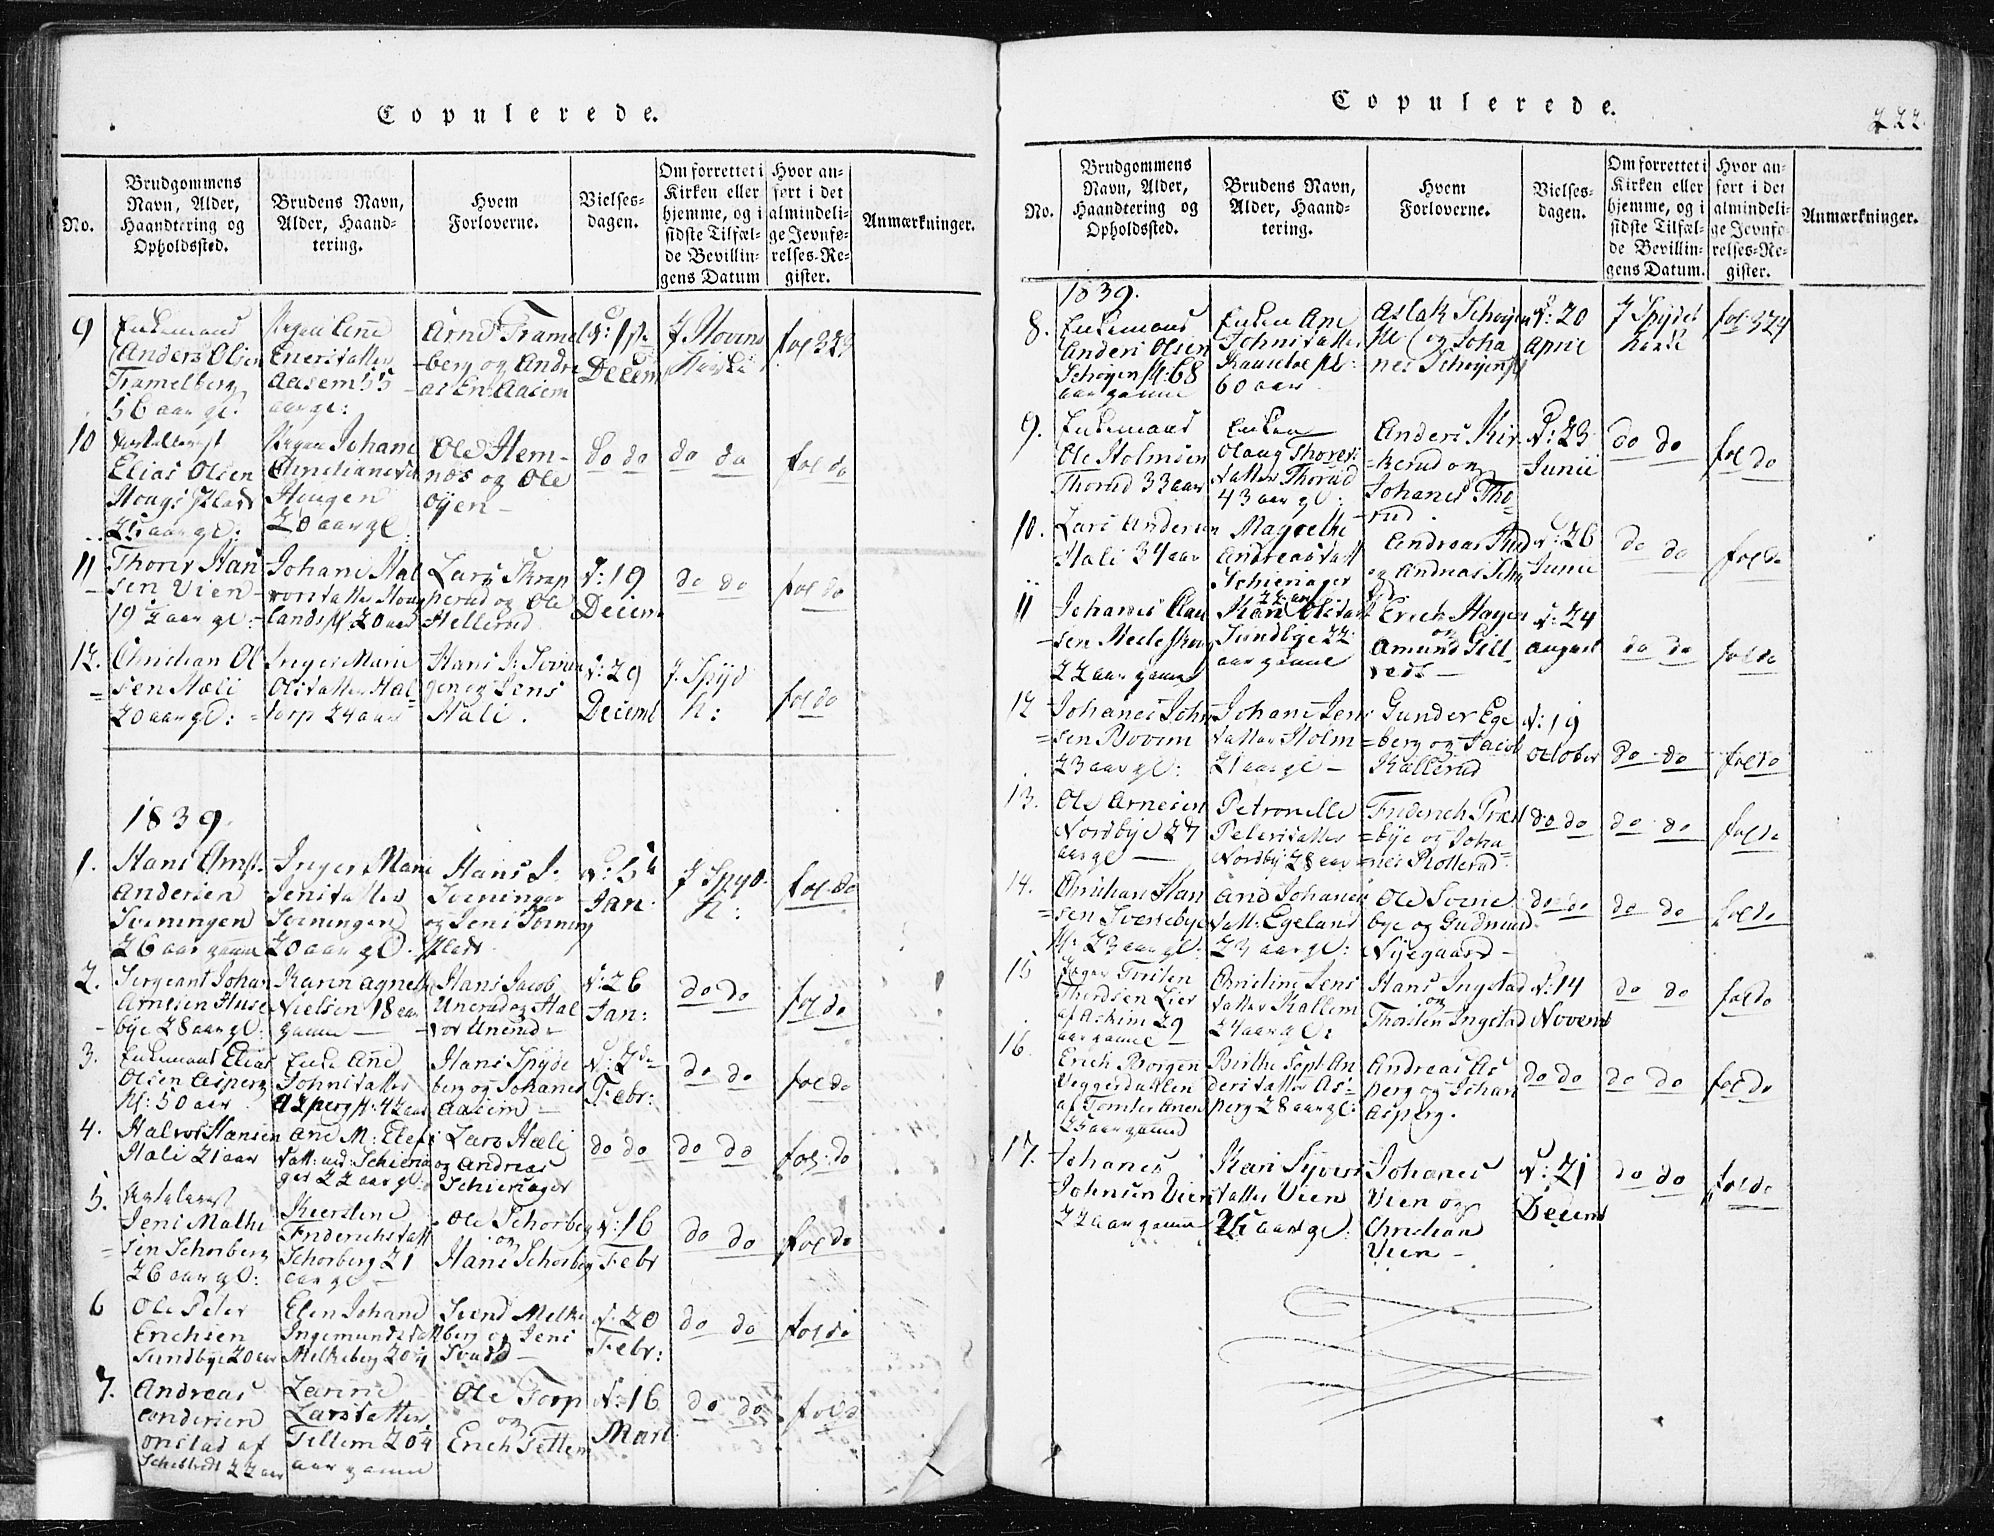 Copulerede.
No.
Brudgommens
Navn, Alder,
Haandtering og
Opholdssted.
Brudens Navn,
Alder, Haand-
tering.
Hvem
Forloverne.
Vielses-
dagen.
Om forrettet i
Kirken eller
hjemme, og i
sidste Tilfæl-
de Bevillin-
gens Datum
Hvor an-
ført i det
almindeli-
ge Jevnfø-
relses-Re-
gister.
Anmærkninger.
9
Enkemand
Anders Olsen
Tramelberg
56 aar gl:
Pigen
Aasem 55
aar gl:
Arne Tramel
-berg og Andre
as
Aasem
Decem
Hovins
Kirke
fol 323
10
Elias Olsen
Pigen Johane
Haugen
20 aar gl
Ole Hem-
nes og Ole
Oyen-
do do
do do
fol do
11
Thorer Han
sen Vien-
19 ½ aar gl:
Johane Hal
vorsdatter Haug
lands pl: 20 aar
Lars Skrap
perud og Ole
Hellerud
d: 19
Decem
do do
fol do
12.
Christian Ol
sen Hæli
20 aar gl: -
Inger Marie
Olsdatter Hal-
torp 24 aar
Hans J: Soenin
gen og Jens
Hæli.
d: 29
Decemb
J: Spyd
h:
fol do
1839.
1.
Hans Christ.
Andersen
Soeningen
26 aar gamle
Inger Marie
Jensdatter
Soeningen
20 aar gl.
Hans J.
Soeningen
og Jens Soening
plads
d: 5te
Jan.
J Spyd.
h:
fol. do
2.
Sergeant Johan
Arnesen Huse
bye 28 aar gl:
Karen Agnethe
Nielsen 18 aar
gamle
Hans Jacob
Unerud og Hal
vor Unerud-
d: 26
Jan:
do do
fol do
3.
Enkemand Elias
Olsen Asperg
pl: 50 aar
Enke Ane
Johnsdatter
Asperg pl: 42 aar
Hans Spyde
berg og Johanes
Aasem
d: 2den
Febr:
do do
fol do
4.
Halvor Hansen
Hæli 21 aar
Ane M: Elefs
datt: ned: Schiena
ger 22 aar gl:
Lars Hæli
og Andreas
Schienager
do do
do do
fol: do
5.
Jens Mathi
sen Schorberg
26 aar gl:
Keerstene
Friderichsdatt
Schorberg 21
aar gl
Ole Schorberg
og
Hans Schorberg
d: 16
Febr
do do
fol do
6
Ole Peter
Erichsen
Sundbye 20 aar
Elen Johane
Ingemundsdatt
Melkeberg 20 ¼
Svend Melke
berg og Jens
d: 20
Febr:
do do
fol do
7.
Andreas
Andersen
Onstad af
22 aar
Larine
Larsdatter
Tettem 20 ¼
aar gamle
Ole Torp
og
Erich Tettem
d: 16
Mart
do do
fol d
Copulerede.
222.
No.
Brudgommens
Navn, Alder,
Haandtering og
Opholdssted.
Brudens Navn,
Alder, Haand-
tering.
Hvem
Forloverne.
Vielses-
dagen.
Om forrettet i
Kirken eller
hjemme, og i
sidste Tilfæl-
de Bevillin-
gens Datum.
Hvor an-
ført i det
almindeli-
ge Jevnfø-
relses-Re-
gister.
Anmærkninger.
1839.
8.
Enkemand
Anders Olsen
Schøyen pl: 68
aar gamle
Enken Ane
Johnsdatter
60 aar
Aslak Schøyen
pl: og Joha
nes Schøyen pl
d: 20
April
J Spydeb
fol: 324
9.
Enkemand
Ole Holmsen
Thorud 33 aar
Enken
Olaug Thorers
datter Thorud
43 aar gl:
Anders Kir
-kerud og
Johanes Tho-
rud
d: 23
Junii
do do
fol do
10.
Lars Andersen
Hæli 34 aar
Magrethe
Andreasdatt
Schienager
22 aar
Andreas
og Andreas
d: 26
Junii
do do
fol do
11
Johanes Clau
sen
22 aar gamle
Kari Olsdatt
Sundbye 22
aar gamle
Erich Hagen
og
Amund
d: 24
August
do do
fol do
12
Johanes John
sen Bovim
23 aar gl:
Johane Jens
datter Holm
21 aar gl
Gunder Ege
berg og Jacob
Kallerud
d: 19
October
do do
fol do
13.
Ole Arnesen
Nordbye 27
aar gl
Petronelle
Petersdatter
Nordby 28 aar
Friderich Præst
bye og Joha
nes Rollerud
do do
do do
fol do
14.
Christian Han
sen Sværsebye
pl: 23 aar gl:
Ane Johanes
datt: Egeland
23 aar gl:
Ole Soene
bye og Gudmund
Nyegaard-
do do
do do
fol do
15
Jæger Torsten
Thordsen Lier
af Askim 29
aar gamle
Christine Jens
datter Kallem
24 aar gl:
Hans Ingstad
og
Thorsten Ingstad
d: 14
Novemb
do do
fol do
16.
Erich
af Tomter Anex
25 aar gamle
Birthe Soph: An
dersdatter As-
perg 28 aar gl:
Andreas As
perg og Johan
Asperg.
do do
do do
fol do
17.
Johanes
Johnsen Vien
22 aar gamle
Kari Syvers
datter Vien
aar gl.
Johanes
Vien og
Christian
Vien-
d: 21
Decemb
do do
fol do